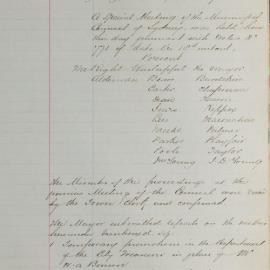 A Special Meeting of the Municipal
Council of Sydney, was held here
this day pursuant with Notice No
of date the 10th instant,
Present
The Right Worshipful the Mayor
Aldermen
Burdekin
Chapman
Dean
Hearn
Jones
Kippax
Lees
Meeks
Palmer
Parkes
Playfair
Poole
Taylor
McElroy J. D. Young
The Minutes of the proceedings at the
previous Meeting of the Council were read
by the Town Clerk and confirmed.
The Mayor submitted reports on the
viz:
1 Temporary promotion in the Department
of the City Treasurer in place of Mr